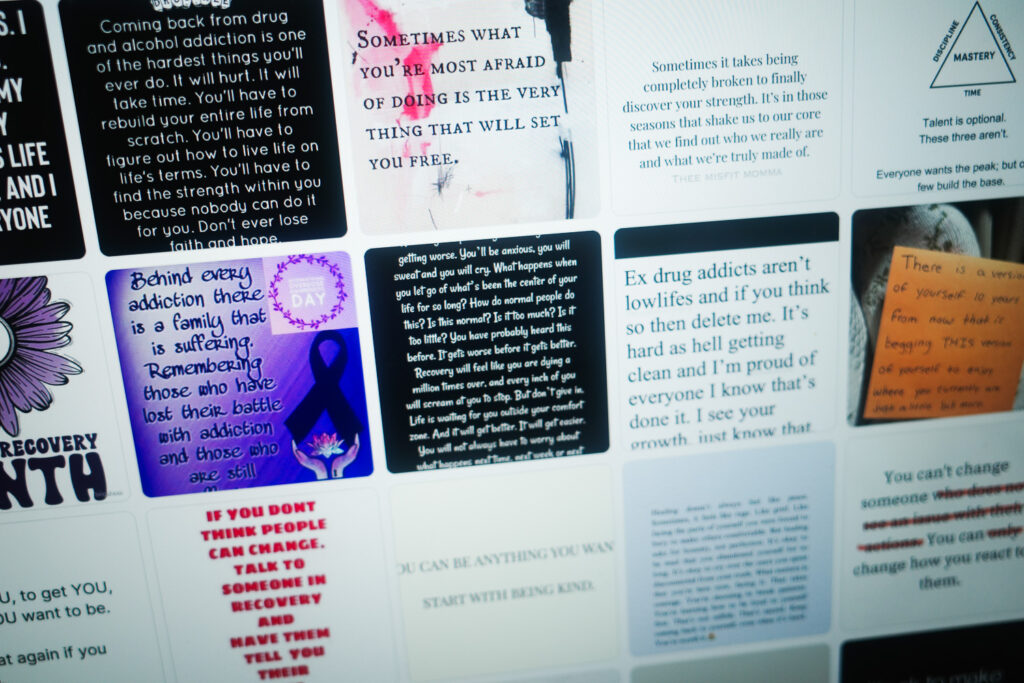 S. I
MY
Y
S LIFE
, AND I
YONE
Coming back from drug
and alcohol addiction is one
of the hardest things you'll
ever do. It will hurt. It will
take time. You'll have to
rebuild your entire life from
scratch. You'll have to
figure out how to live life on
life's terms. You'll have to
find the strength within you
because nobody can do it
for you. Don't ever lose
faith and hope.
SOMETIMES WHAT
YOU'RE MOST AFRAID
OF DOING IS THE VERY
THING THAT WILL SET
YOU FREE.
Sometimes it takes being
completely broken to finally
discover your strength. It's in those
seasons that shake us to our core
that we find out who we really are
and what we're truly made of.
THEE MISFIT MOMMA
DISCIPLINE
CONSISTENCY
MASTERY
TIME
Talent is optional.
These three aren't.
Everyone wants the peak; but
few build the base.
RECOVERY
NTH
Behind every
addiction there
is a family that
is suffering.
Remembering
those who have
lost their battle
with addiction
and those who
are still
DAY
getting worse. You'll be anxious, you will
sweat and you will cry. What happens when
you let go of what's been the center of your
life for so long? How do normal people do
this? Is this normal? Is it too much? Is it
too little? You have probably heard this
before. It gets worse before it gets better.
Recovery will feel like you are dying a
million times over, and every inch of you
will scream at you to stop. But don't give in.
Life is waiting for you outside your comfort
zone. And it will get better. It will get easier.
You will not always have to worry about
what happens next time, next week or next
Ex drug addicts aren't
lowlifes and if you think
so then delete me. It's
hard as hell getting
clean and I'm proud of
everyone I know that's
done it. I see your
growth, just know that
There is a version
of yourself 10 years
from now that is
begging THIS version
of yourself to enjoy
where you currently are
just a little bit more.
U, to get YOU,
OU want to be.
at again if you
IF YOU DONT
THINK PEOPLE
CAN CHANGE.
TALK TO
SOMEONE IN
RECOVERY
AND
HAVE THEM
TELL YOU
THEIR
OU CAN BE ANYTHING YOU WAN
START WITH BEING KIND.
You can't change
someone who does no
see an issue with their
actions. You can only
change how you react to
them.